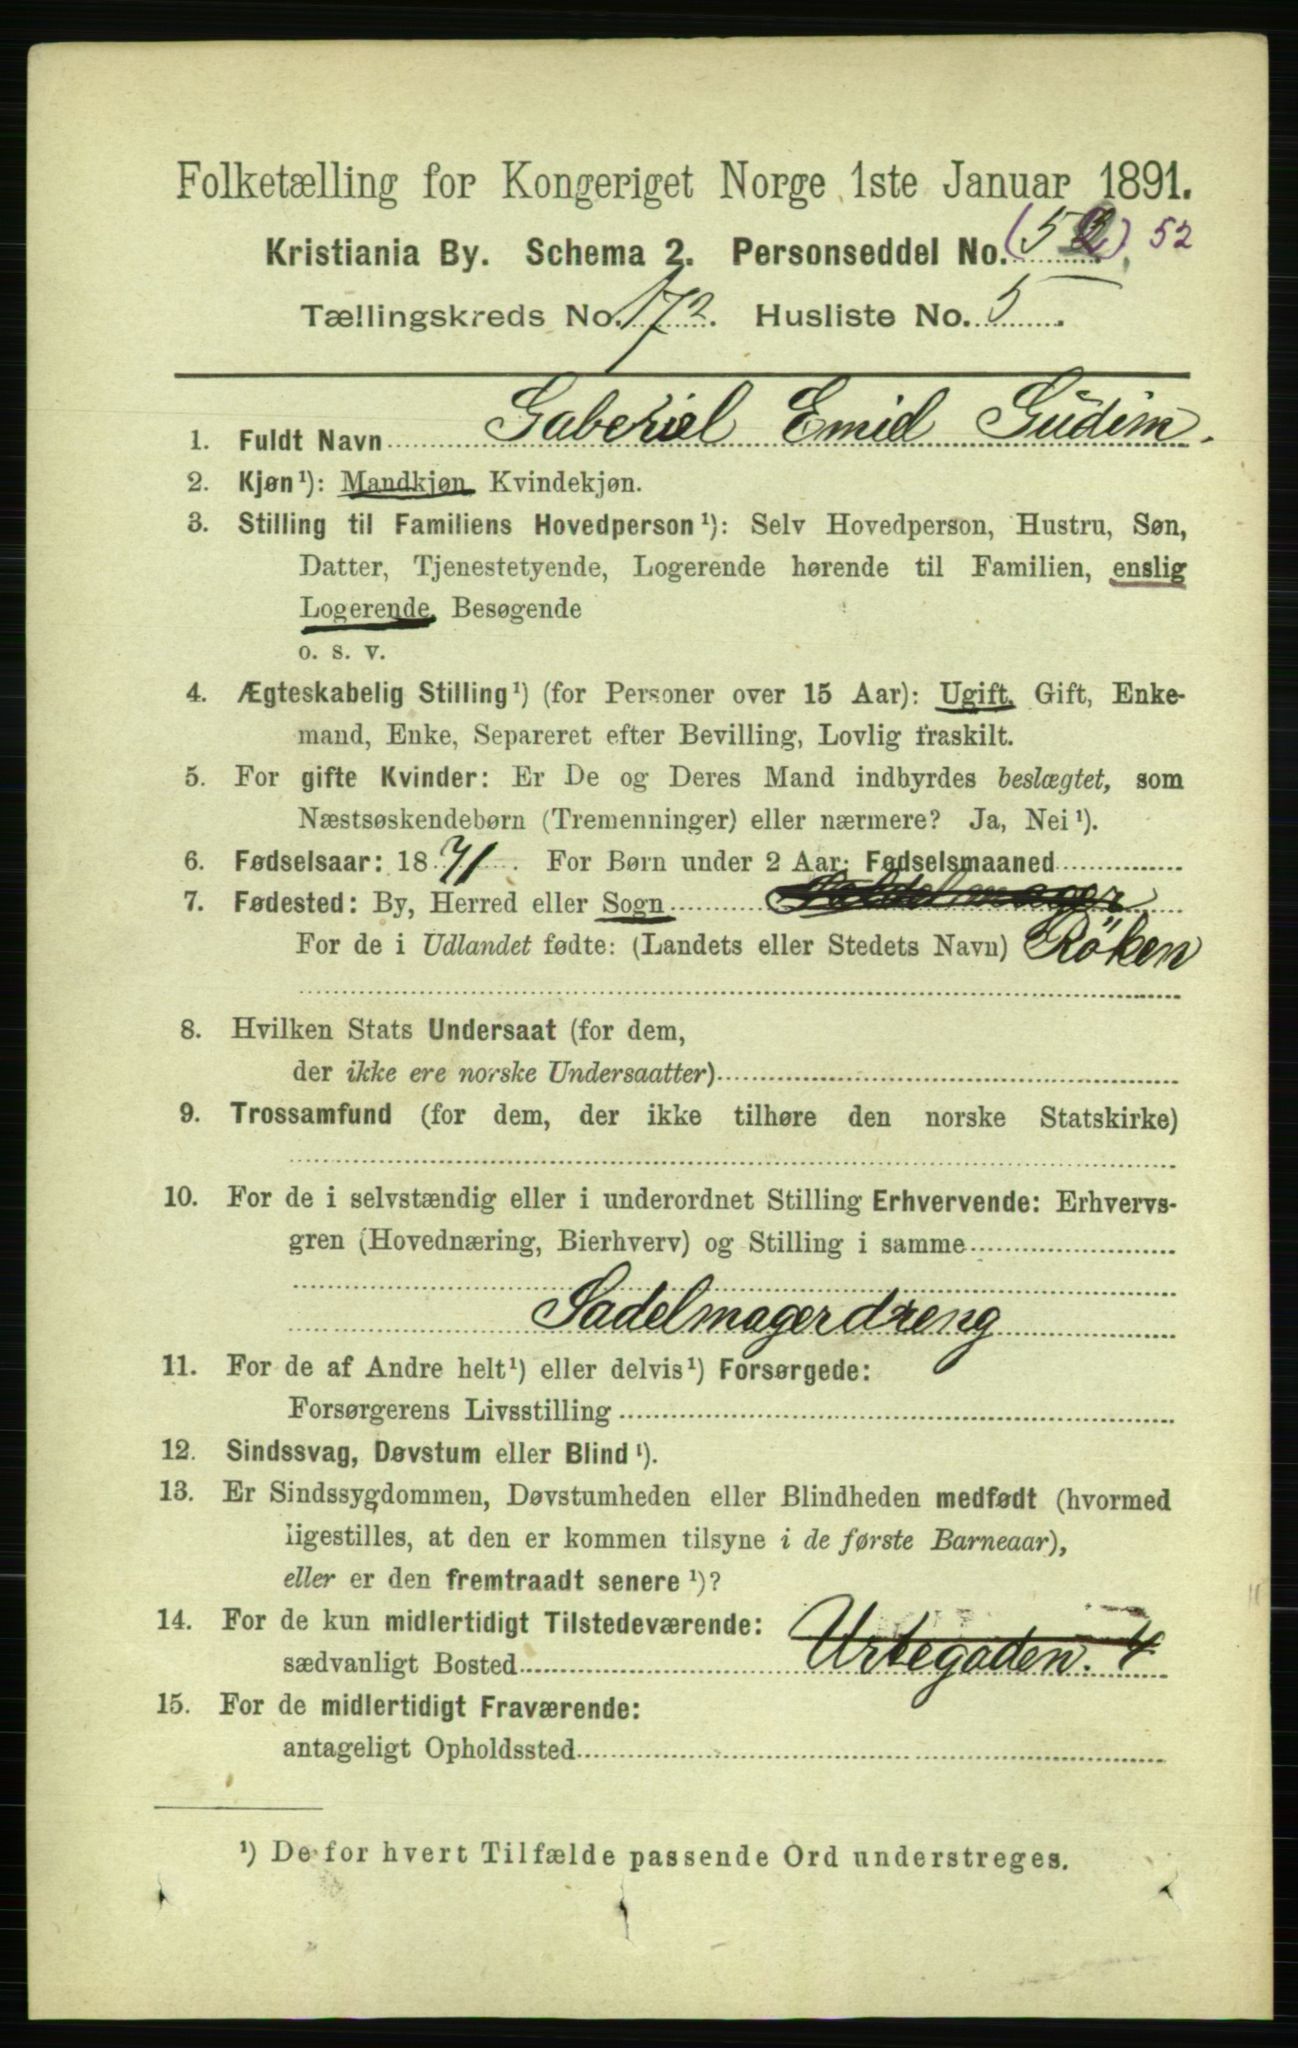 Folketælling for Kongeriget Norge 1ste Januar 1891.
Kristiania By. Schema 2. Personseddel No. (52) 52
Tællingskreds No. 172. Husliste No. 5.
1. Fuldt Navn Gaberiel Emiel Güdim.
2. Kjøn¹): Mandkjøn, Kvindekjøn.
3. Stilling til Familiens Hovedperson¹): Selv Hovedperson, Hustru, Søn,
Datter, Tjenestetyende, Logerende hørende til Familien, enslig
Logerende, Besøgende
o. s. v.
4. Ægteskabelig Stilling¹) (for Personer over 15 Aar): Ugift, Gift, Enke-
mand, Enke, Separeret efter Bevilling, Lovlig fraskilt.
5. For gifte Kvinder: Er De og Deres Mand indbyrdes beslægtet, som
Næstsøskendebørn (Tremenninger) eller nærmere? Ja, Nei¹).
6. Fødselsaar: 1871. For Børn under 2 Aar: Fødselsmaaned
7. Fødested: By, Herred eller Sogn Saldelmager
For de i Udlandet fødte: (Landets eller Stedets Navn) Röken
8. Hvilken Stats Undersaat (for dem,
der ikke ere norske Undersaatter)
9. Trossamfund (for dem, der ikke tilhøre den norske Statskirke)
10. For de i selvstændig eller i underordnet Stilling Erhvervende: Erhvervs-
gren (Hovednæring, Bierhverv) og Stilling i samme
Sadelmagerdreng
11. For de af Andre helt¹) eller delvis¹) Forsørgede:
Forsørgerens Livsstilling
12. Sindssvag, Døvstum eller Blind¹).
13. Er Sindssygdommen, Døvstumheden eller Blindheden medfødt (hvormed
ligestilles, at den er kommen tilsyne i de første Barneaar),
eller er den fremtraadt senere¹)?
14. For de kun midlertidigt Tilstedeværende:
sædvanligt Bosted Urtegaden. 4
15. For de midlertidigt Fraværende:
antageligt Opholdssted
¹) De for hvert Tilfælde passende Ord understreges.